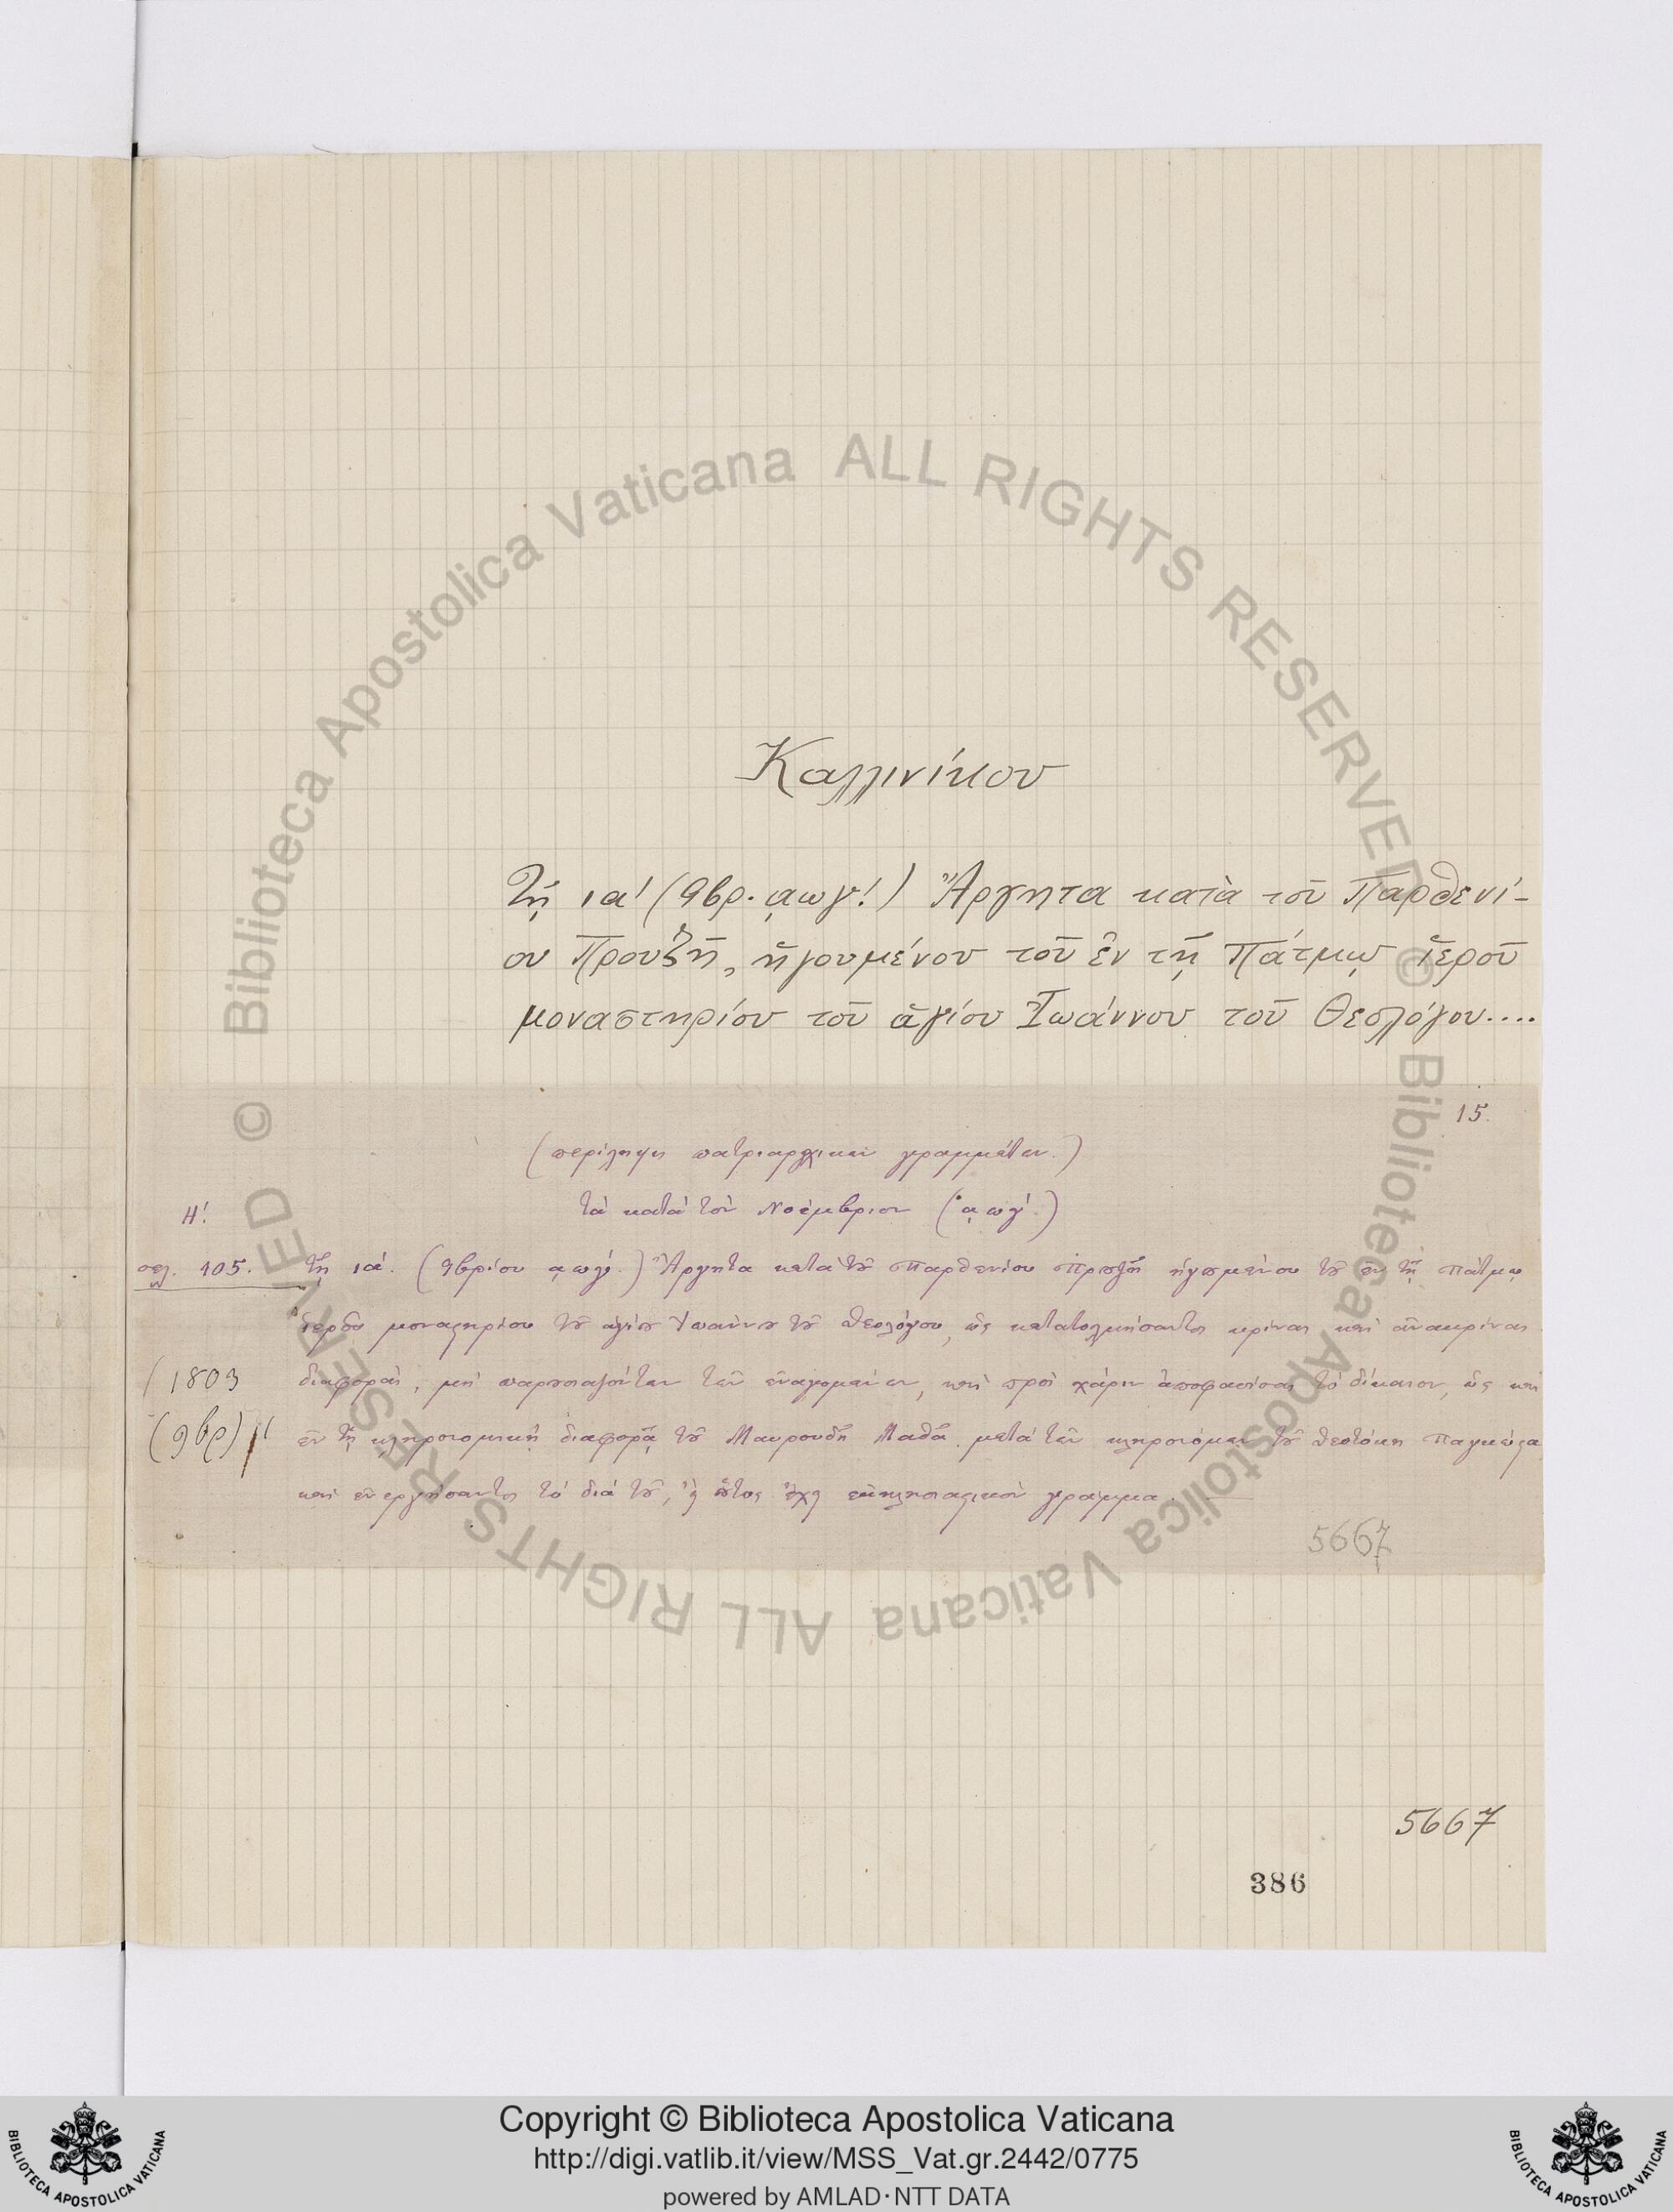 Καλλινίκου
Τῇ ια' (9βρ. ͵αωγ'.) Ἄργητα κατὰ τοῦ Παρθενί-
ου Προυζῆ, ἡγουμένου τοῦ ἐν τῇ Πάτμῳ ἱεροῦ
μοναστηρίου τοῦ ἁγίου Ἰωάννου τοῦ Θεολόγου....
15.
(περίληψη πατριαρχικῶν γραμμάτων.)
Η'. τὰ κατὰ τὸν Νοέμβριον (͵αωγ'.)
σελ. 105. τῇ ια'. (9βρίου ͵αωγ'.) Ἄργητα κατὰ τοῦ Παρθενίου Προυζῆ ἡγουμένου τοῦ ἐν τῇ Πάτμῳ
ἱεροῦ μοναστηρίου τοῦ ἁγίου Ἰωάννου τοῦ Θεολόγου, ὡς κατατολμήσαντος κρίναι καὶ ἀνακρίναι
(1803 διαφοράν, μὴ παρουσιαζόντων τῶν ἐναγομένων, καὶ πρὸς χάριν ἀποφασίσαι τὸ δίκαιον, ὡς καὶ
(9βρ) 11 ἐν τῇ κληρονομικῇ διαφορᾷ τοῦ Μαυρουδῆ Μαθᾶ μετὰ τῶν κληρονόμων τοῦ Θεοτόκη Παγκώστα
καὶ ἐνεργήσαντος τὸ διὰ τοῦ, οὗτος ἔχῃ ἐκκλησιαστικὸν γράμμα.
5667
5667
386
Biblioteca Apostolica Vaticana ALL RIGHTS RESERVED ©
Biblioteca Apostolica Vaticana ALL RIGHTS RESERVED ©
Copyright © Biblioteca Apostolica Vaticana
http://digi.vatlib.it/view/MSS_Vat.gr.2442/0775
powered by AMLAD·NTT DATA
BIBLIOTECA APOSTOLICA VATICANA
BIBLIOTECA APOSTOLICA VATICANA